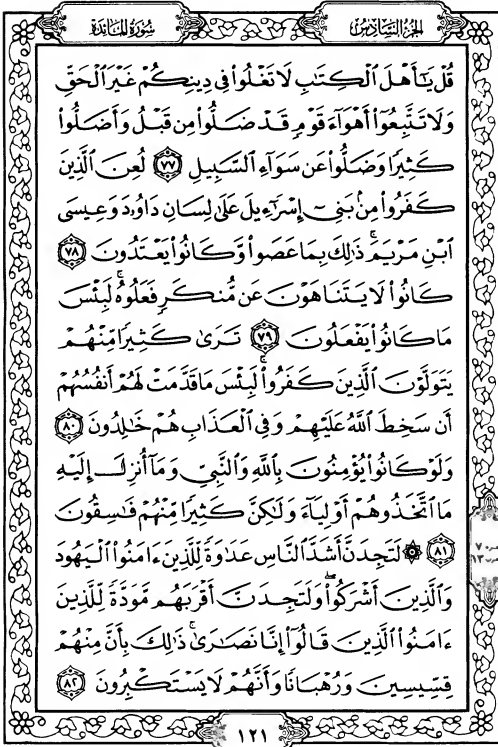 الجزء السادس
سورة المائدة
قُلْ يَـٰٓأَهْلَ ٱلْكِتَـٰبِ لَا تَغْلُوا۟ فِى دِينِكُمْ غَيْرَ ٱلْحَقِّ
وَلَا تَتَّبِعُوٓا۟ أَهْوَآءَ قَوْمٍ قَدْ ضَلُّوا۟ مِن قَبْلُ وَأَضَلُّوا۟
كَثِيرًا وَضَلُّوا۟ عَن سَوَآءِ ٱلسَّبِيلِ ٧٧ لُعِنَ ٱلَّذِينَ
كَفَرُوا۟ مِنۢ بَنِىٓ إِسْرَٰٓءِيلَ عَلَىٰ لِسَانِ دَاوُۥدَ وَعِيسَى
ٱبْنِ مَرْيَمَ ۚ ذَٰلِكَ بِمَا عَصَوا۟ وَّكَانُوا۟ يَعْتَدُونَ ٧٨
كَانُوا۟ لَا يَتَنَاهَوْنَ عَن مُّنكَرٍ فَعَلُوهُ ۚ لَبِئْسَ
مَا كَانُوا۟ يَفْعَلُونَ ٧٩ تَرَىٰ كَثِيرًا مِّنْهُمْ
يَتَوَلَّوْنَ ٱلَّذِينَ كَفَرُوا۟ ۚ لَبِئْسَ مَا قَدَّمَتْ لَهُمْ أَنفُسُهُمْ
أَن سَخِطَ ٱللَّهُ عَلَيْهِمْ وَفِى ٱلْعَذَابِ هُمْ خَـٰلِدُونَ ٨٠
وَلَوْ كَانُوا۟ يُؤْمِنُونَ بِٱللَّهِ وَٱلنَّبِىِّ وَمَآ أُنزِلَ إِلَيْهِ
مَا ٱتَّخَذُوهُمْ أَوْلِيَآءَ وَلَـٰكِنَّ كَثِيرًا مِّنْهُمْ فَـٰسِقُونَ
٨١ ۞ لَتَجِدَنَّ أَشَدَّ ٱلنَّاسِ عَدَٰوَةً لِّلَّذِينَ ءَامَنُوا۟ ٱلْيَهُودَ
وَٱلَّذِينَ أَشْرَكُوا۟ ۖ وَلَتَجِدَنَّ أَقْرَبَهُم مَّوَدَّةً لِّلَّذِينَ
ءَامَنُوا۟ ٱلَّذِينَ قَالُوٓا۟ إِنَّا نَصَـٰرَىٰ ۚ ذَٰلِكَ بِأَنَّ مِنْهُمْ
قِسِّيسِينَ وَرُهْبَانًا وَأَنَّهُمْ لَا يَسْتَكْبِرُونَ ٨٢
١٢١